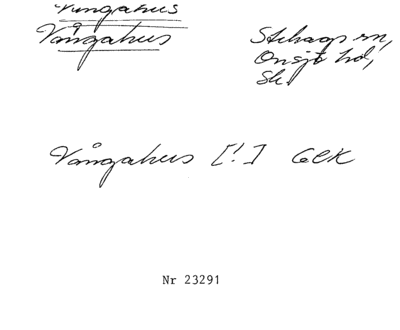 Vångahus
Vångahus
Stehags sn,
Onsjö hd,
Sk.
Vångahus [!] GCK
Nr 23291